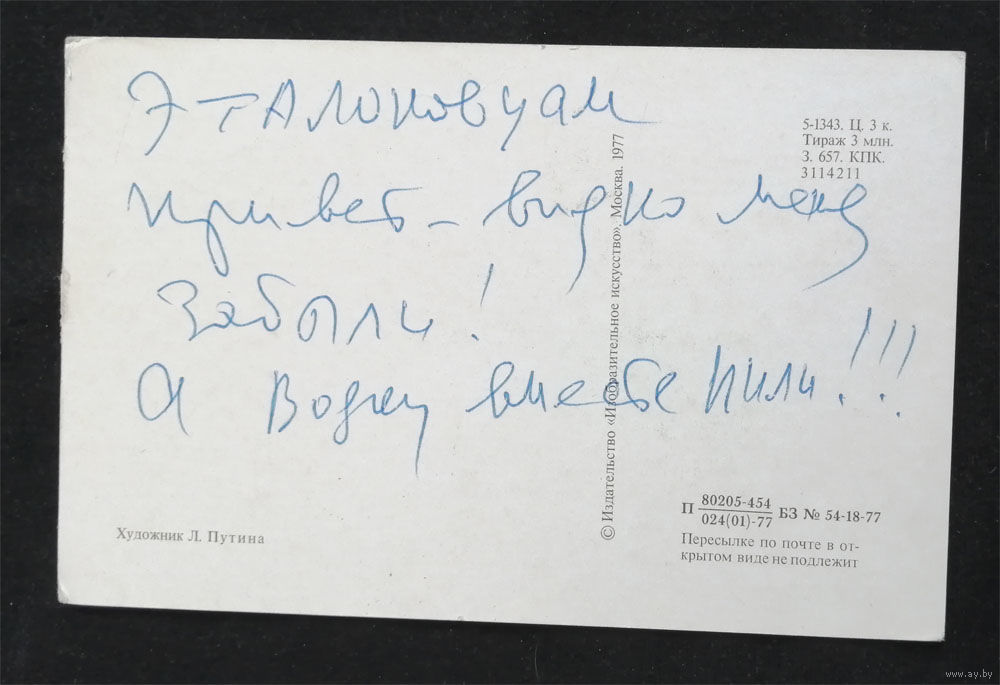 Эталоновцам
привет – видно меня
забыли!
А водку вместе пили!!!
5-1343. Ц. 3 к.
Тираж 3 млн.
З. 657. КПК.
3114211
© Издательство «Изобразительное искусство». Москва. 1977
Художник Л. Путина
П 80205-454
024(01)-77 БЗ № 54-18-77
Пересылке по почте в от-
крытом виде не подлежит
www.ay.by